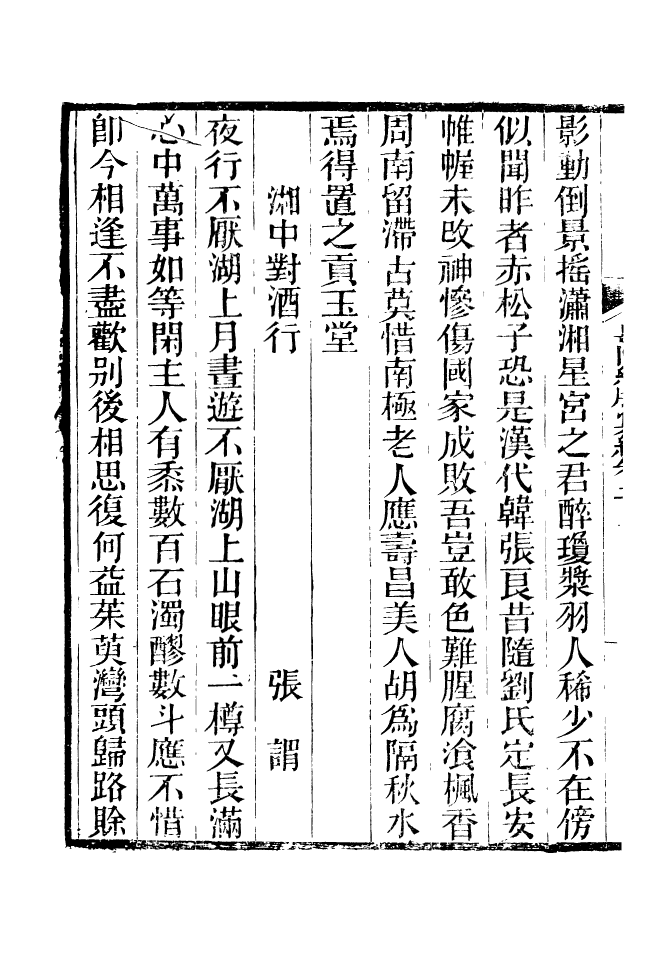 影動倒景搖瀟湘星宮之君醉瓊漿羽人稀少不在傍
似聞昨者赤松子恐是漢代韓張良昔隨劉氏定長安
帷幄未改神慘傷國家成敗吾豈敢色難腥腐飡楓香
周南留滯古莫惜南極老人應壽昌美人胡為隔秋水
焉得置之貢玉堂
湖中對酒行 張謂
夜行不厭湖上月晝遊不厭湖上山眼前一樽又長滿
心中萬事如等閑主人有黍數百石濁醪數斗應不惜
卽今相逢不盡歡别後相思復何益茱萸灣頭歸路賒